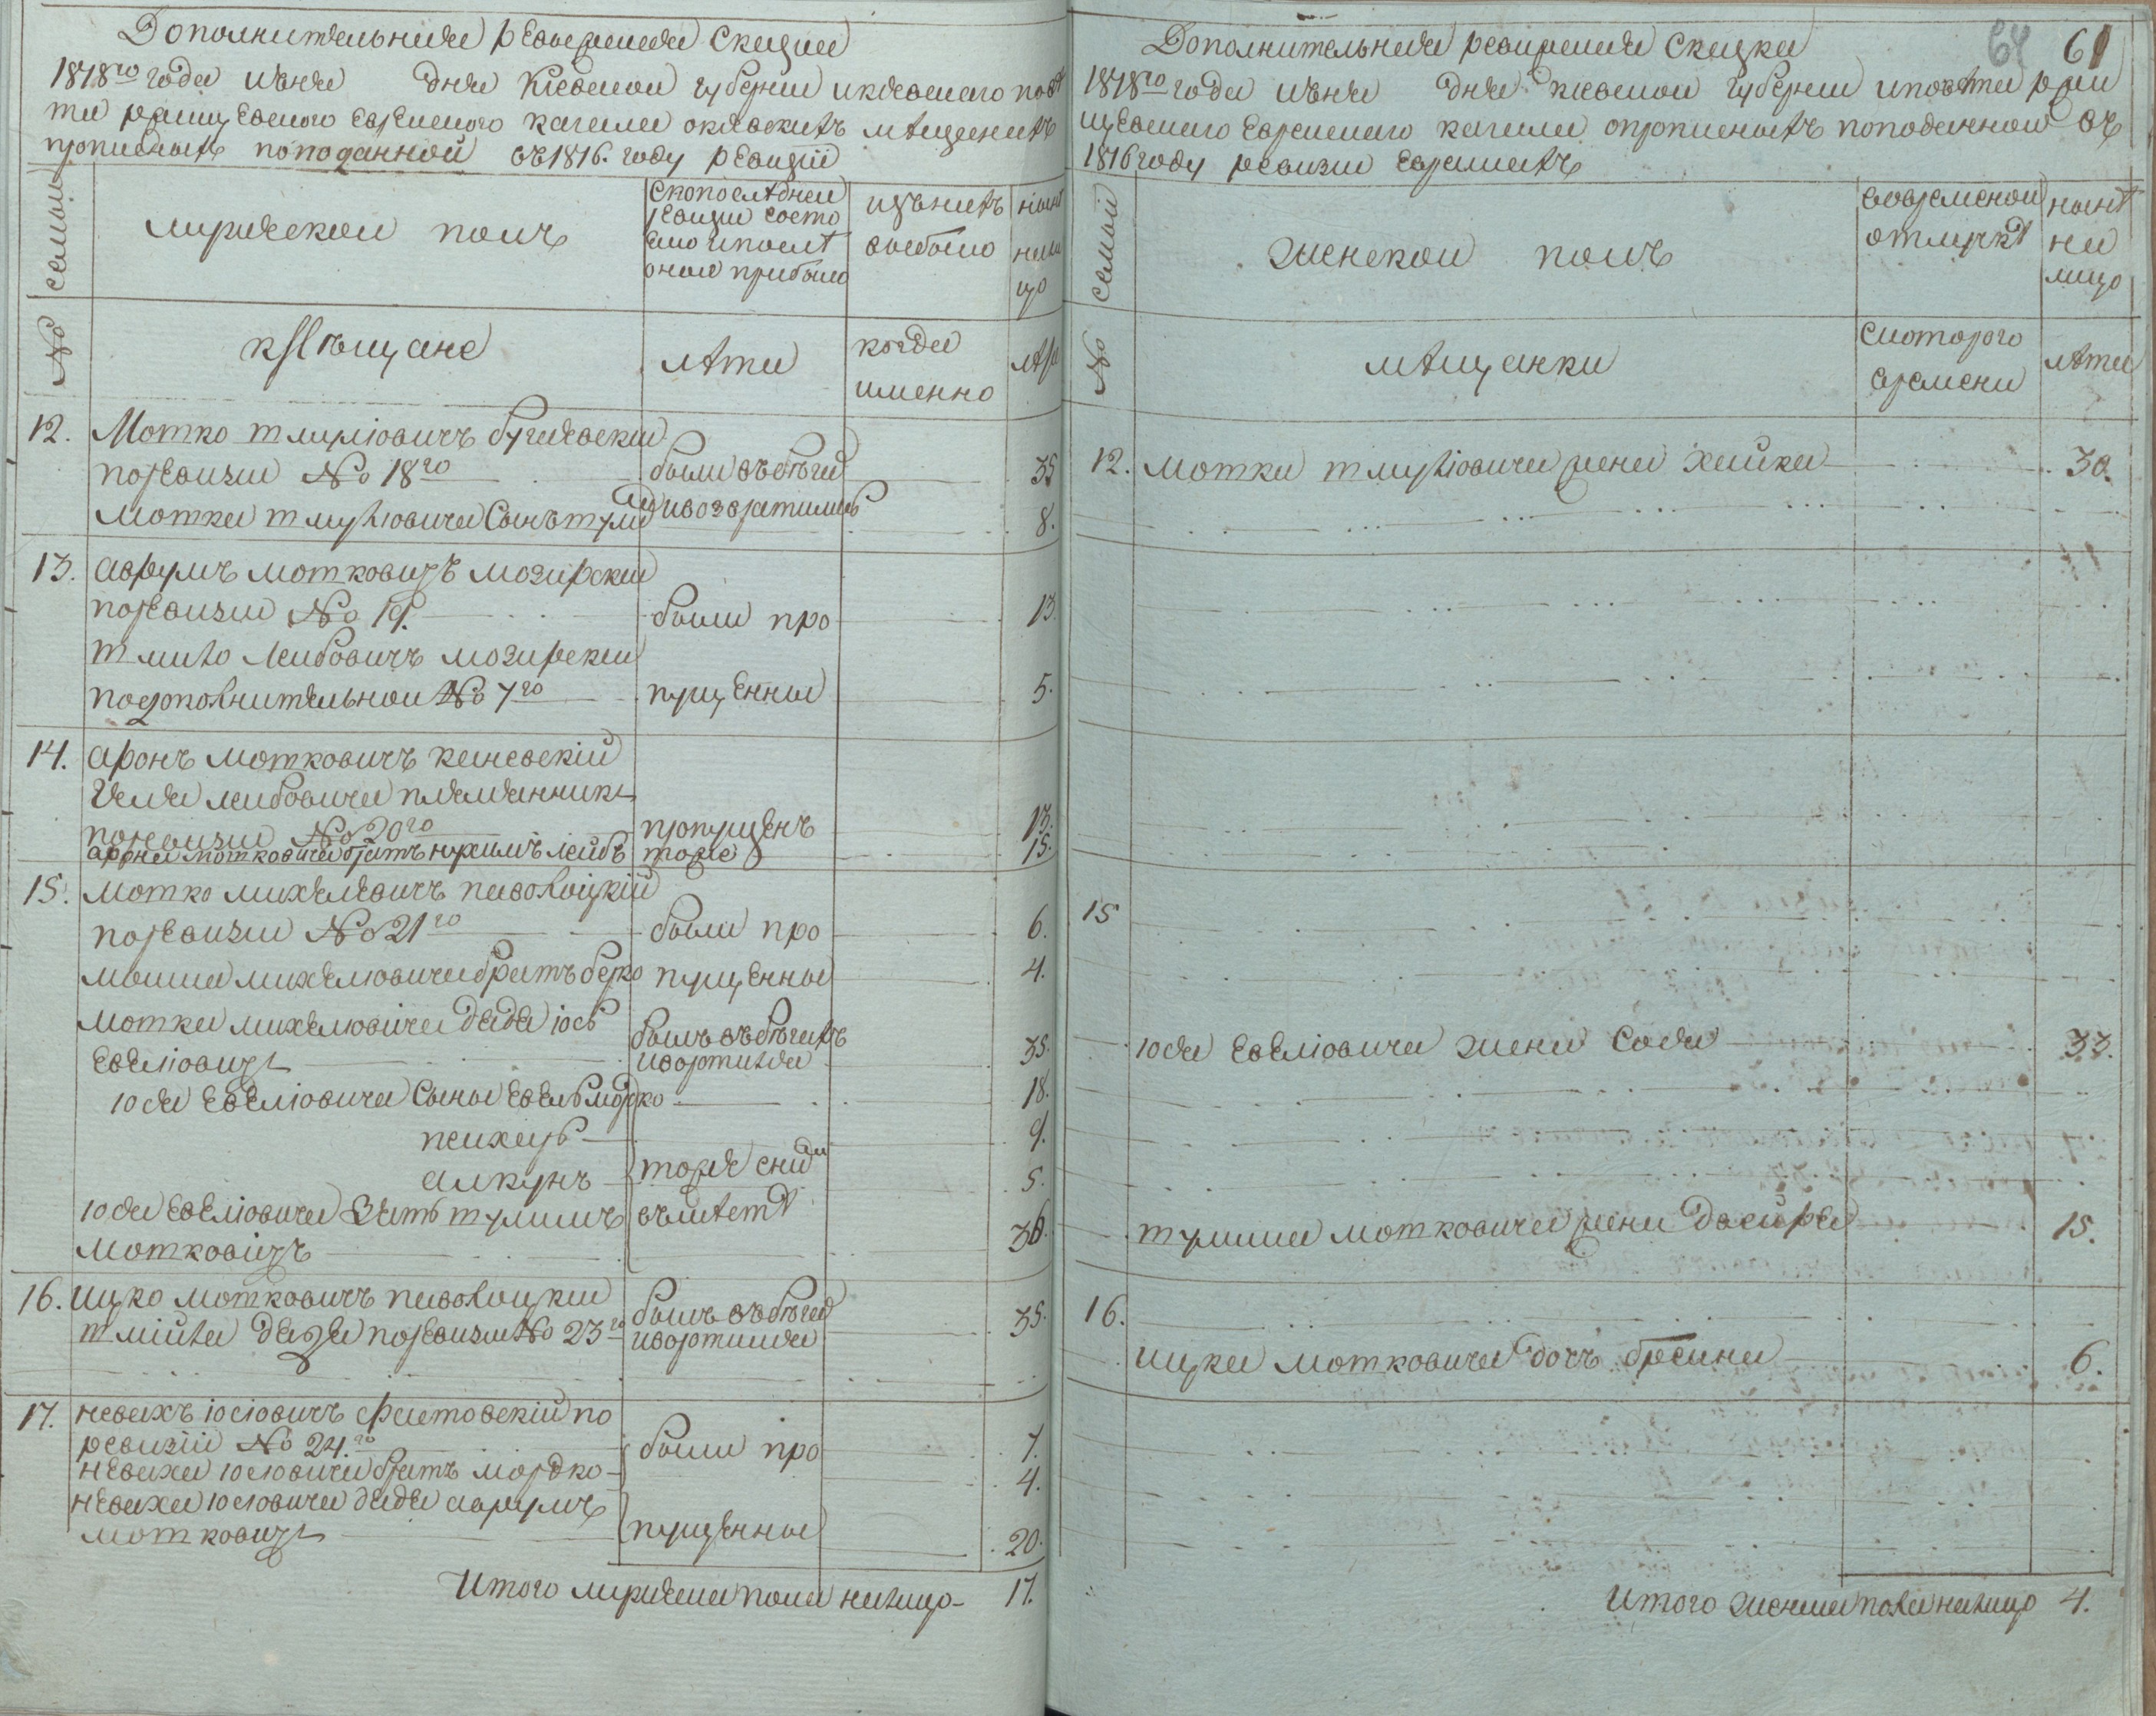 Дополнительная ревизская скаска
1818го года июня дня Киевской губернии и Киевского повѣ
та ращуевского еврейского кагала о мѣщанахъ
прописныхъ по поданной въ 1816. году ревизіи
семьи
мужеской полъ
Сколо послѣдней
ревизии состо
яло и послѣ
оной прибыло
изъ нихъ
выбыло
нынѣ
на ли
цо
№
мѣщане
лѣта
когда
именно
лѣта
12. Мотко Шмулiовичъ
по ревизии № 18го
были въ бѣгах 35
Мотки Шмулiовича Сынъ
и возвратились 8.
13. Аврумъ Мотковичъ мозирский
по ревизии № 19. были про 13.
Шмило Лейбовичъ мозирский
по дополнительной № 7го пущенные 5.
14. Аронъ Мотковичъ каневскій
Лейбовича племянникъ
по ревизии № 20го пропущенъ 13.
Арона Мотковича братъ Нухимъ Лейбъ тоже 15.
15. Мотко Михелевичъ паволоцкій
по ревизии № 21го были про 6.
Мошка Михелiовича братъ Берко пущенные 4.
Мотки Михелювича дядя Іось
Евелiовичъ
былъ въ бѣгахъ
и вортился 35.
Іося Евелiовича Сыны Евель Мордко 18.
Пейхецъ 9.
Алкунъ тоже сним 5.
Іося Евелiовича Зять Шулимъ вместѣ
Мотковичъ 36.
16. Ицко Мотковичъ паволоцкии былъ въ бѣгах
дядя по ревизии № 23го и вортился 35.
17. Невахъ Іосiовичъ фастовскій по
ревизіи № 24.го были про 7.
Неваха Іосiовича братъ Мордко 4.
Неваха Іосiовича дядя Аврумъ
Мотковичъ пущенные 20.
Итого мужеска пола налицо 17.
64 61
Дополнительная ревизская скаска
1818го года июня дня Киевской губернии и повѣта ра
щуевского еврейского кагала о прописныхъ по поданной въ
1816 году ревизии евреяхъ
семьи
женской полъ
во временной
отлучкѣ
нынѣ
на
лицо
№
мѣщанки
с которого
времени
лѣта
12. Мотки Шмулiовича жена Хайка 30.
15
Іося Евелiовича жена Сося 33.
Шулима Мотковича жена Двойра 15.
16.
Ицка Мотковича дочъ Брейна 6.
Итого женска пола налицо 4.